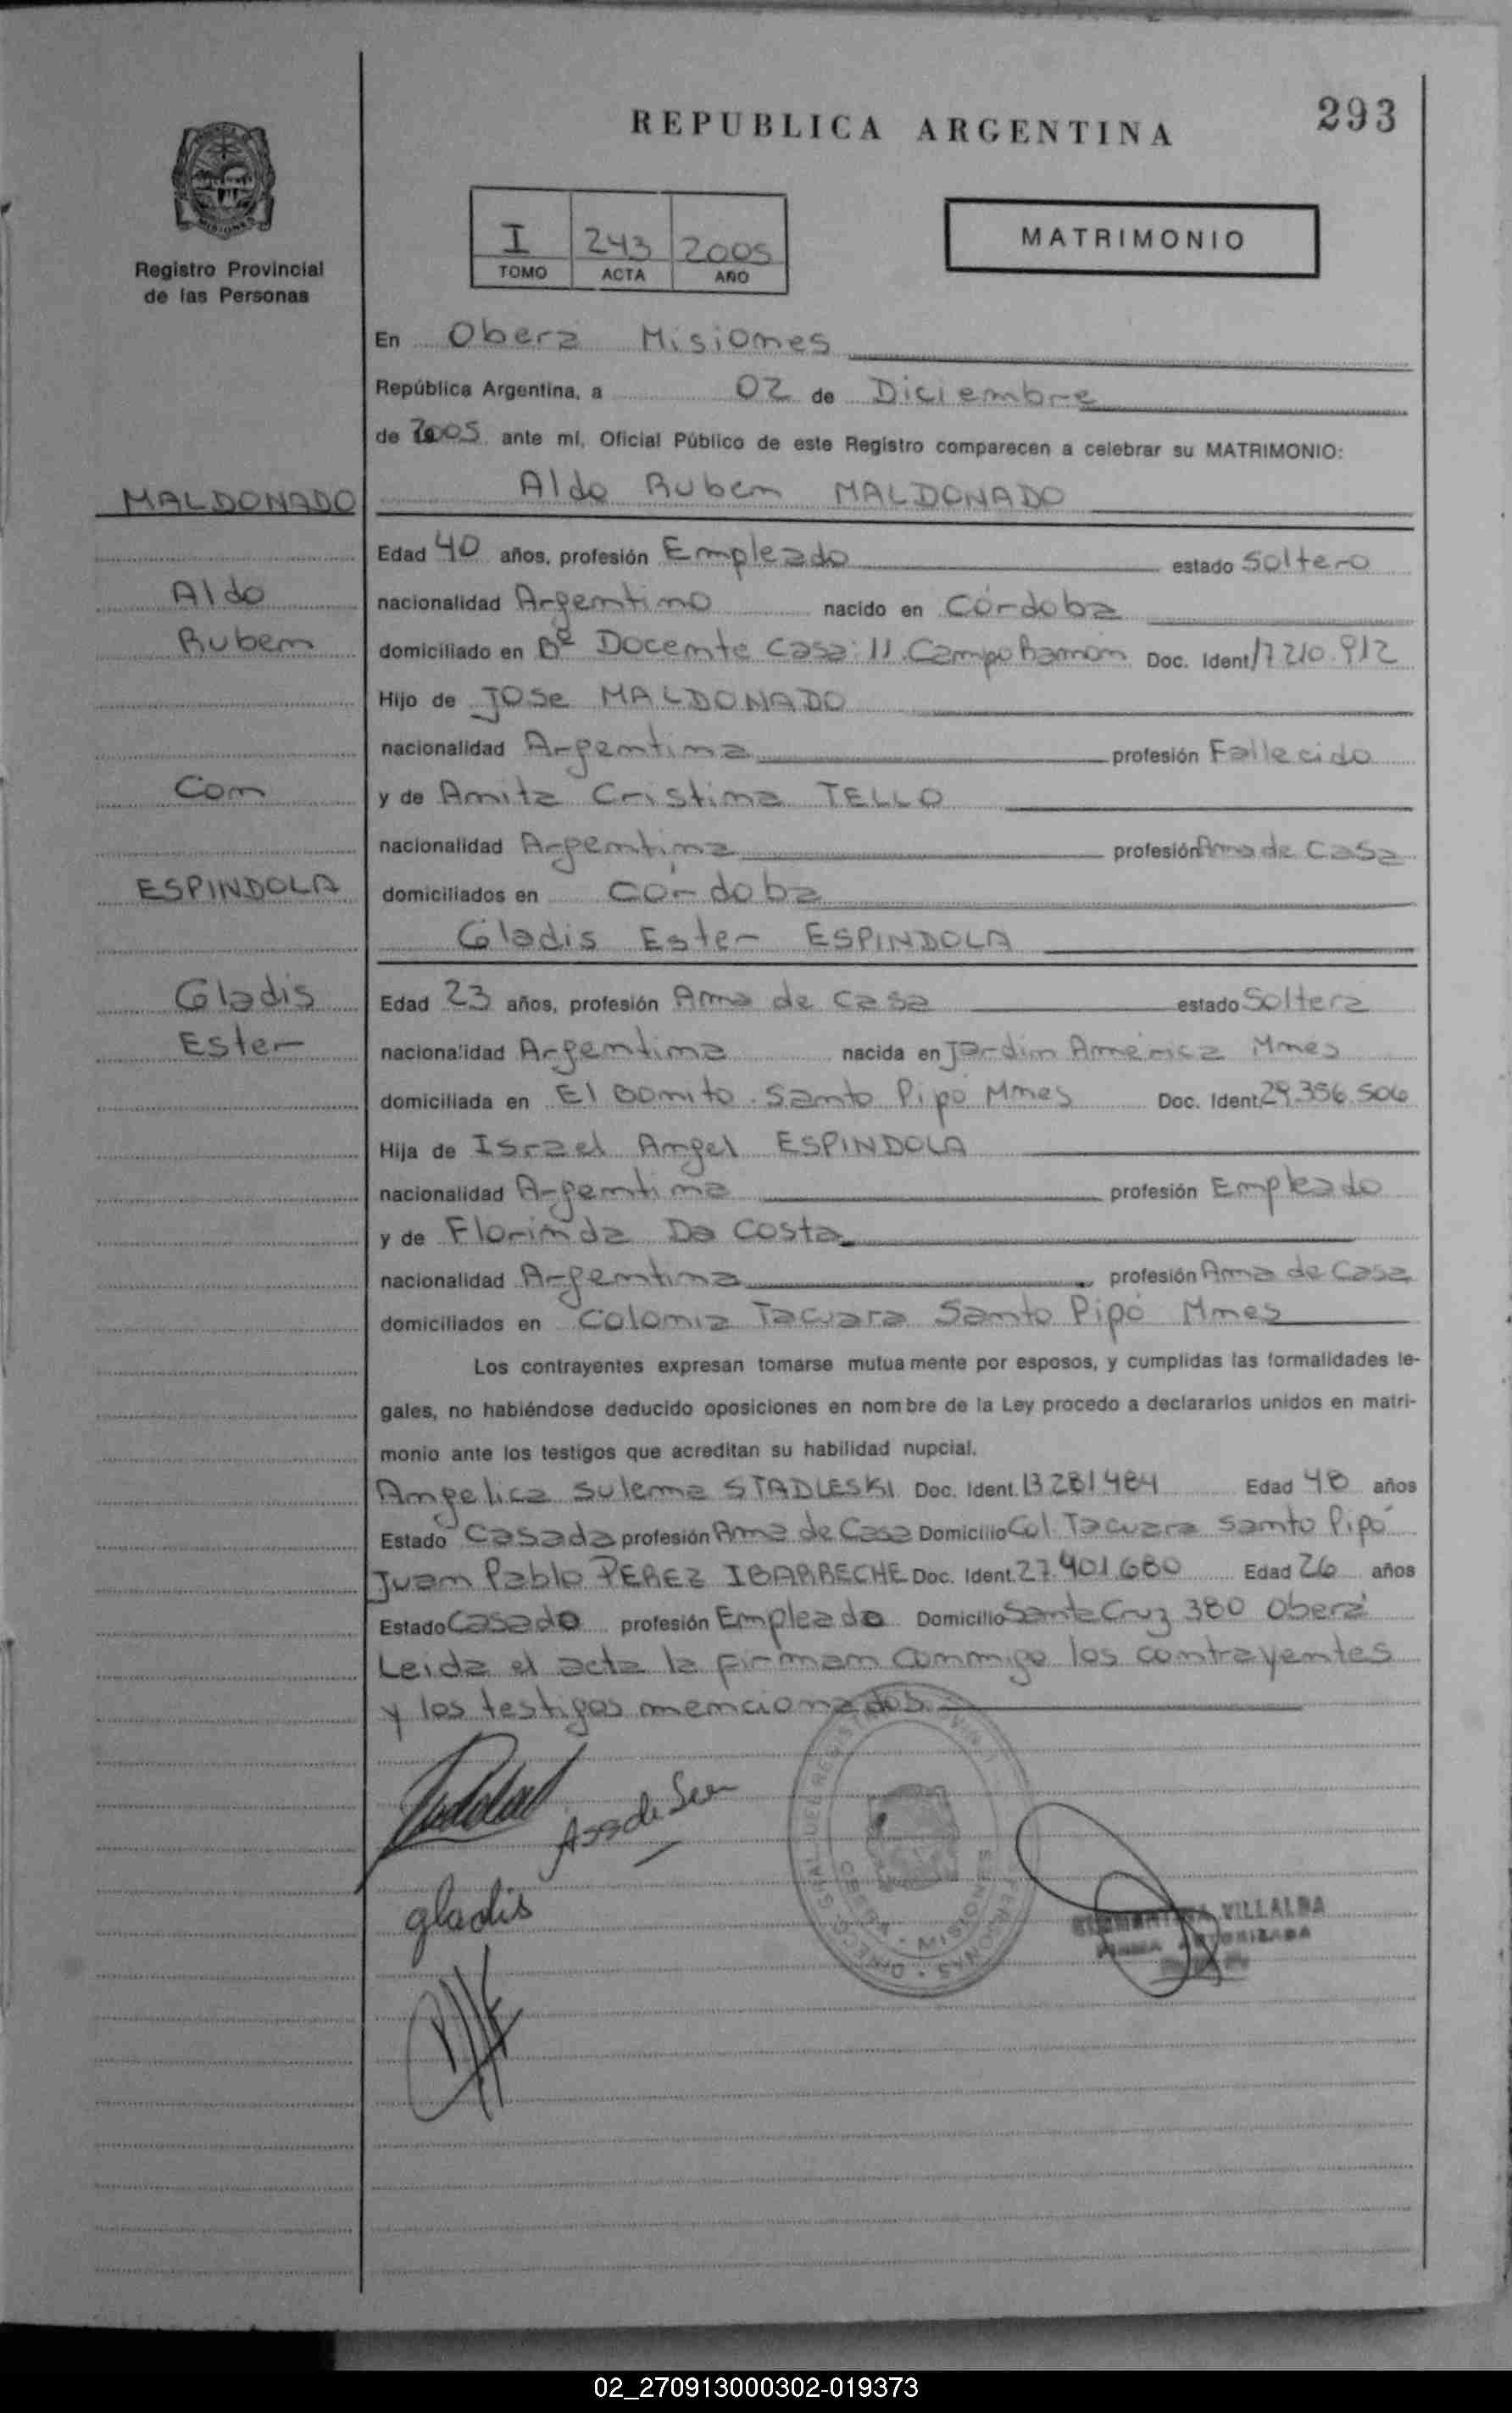 REPUBLICA ARGENTINA
293
I 243 2005
TOMO ACTA AÑO
MATRIMONIO
Registro Provincial
de las Personas
En Oberá Misiones
República Argentina, a 02 de Diciembre
de 2005 ante mí, Oficial Público de este Registro comparecen a celebrar su MATRIMONIO:
MALDONADO
Aldo Ruben MALDONADO
Edad 40 años, profesión Empleado estado Soltero
Aldo
nacionalidad Argentino nacido en Córdoba
Ruben
domiciliado en Bº Docente Casa: 11 Campo Ramón Doc. Ident 17210.912
Hijo de JOSe MALDONADO
nacionalidad Argentina profesión Fallecido
Con
y de Anita Cristina TELLO
nacionalidad Argentina profesión Ama de Casa
ESPINDOLA
domiciliados en Córdoba
Gladis Ester ESPINDOLA
Gladis
Edad 23 años, profesión Ama de Casa estado Soltera
Ester
nacionalidad Argentina nacida en Jardín América Mnes
domiciliada en El Bonito Santo Pipó Mnes Doc. Ident 29.356.506
Hija de Israel Angel ESPINDOLA
nacionalidad Argentina profesión Empleado
y de Florinda Da Costa
nacionalidad Argentina profesión Ama de Casa
domiciliados en Colonia Tacuara Santo Pipó Mnes
Los contrayentes expresan tomarse mutuamente por esposos, y cumplidas las formalidades le-
gales, no habiéndose deducido oposiciones en nombre de la Ley procedo a declararlos unidos en matri-
monio ante los testigos que acreditan su habilidad nupcial.
Angelica Sulema STADLESKI Doc. Ident. 13281484 Edad 48 años
Estado Casada profesión Ama de Casa Domicilio Col. Tacuara Santo Pipó
Juan Pablo PEREZ IBARRECHE Doc. Ident. 27.401.680 Edad 26 años
Estado Casado profesión Empleado Domicilio Santa Cruz 380 Oberá
Leida el acta la firman conmigo los contrayentes
y los testigos mencionados.
gladis
VILLALBA
MISIONES
02_270913000302-019373